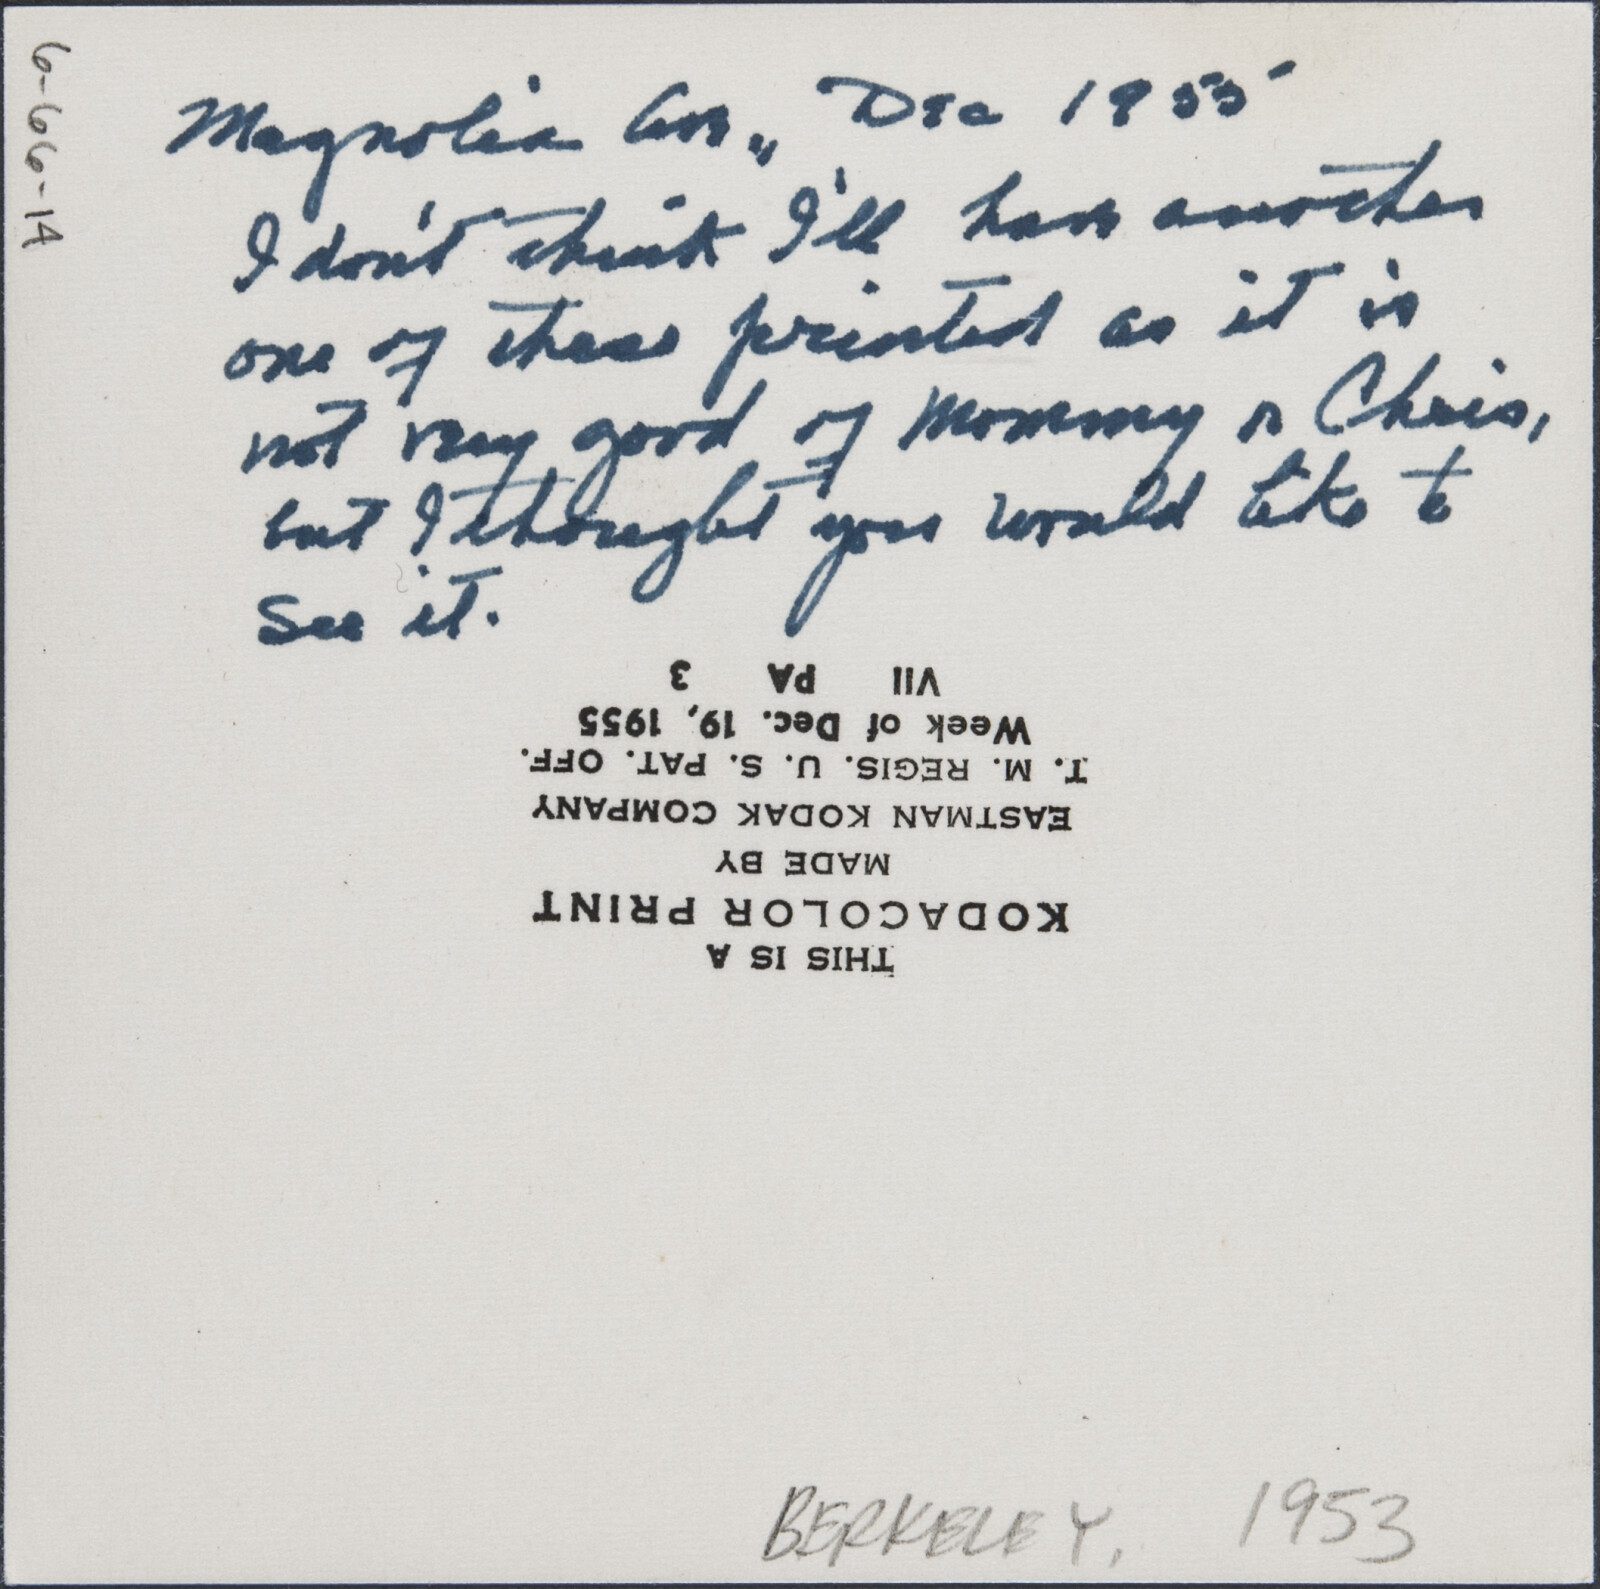 6-66-14
Magnolia Ave., Dec 1955
I don't think I'll have another
one of these printed as it is
not very good of Mommy or Chris,
but I thought you would like to
see it.
THIS IS A
KODACOLOR PRINT
MADE BY
EASTMAN KODAK COMPANY
T. M. REGIS. U. S. PAT. OFF.
Week of Dec. 19, 1955
VII PA 3
BERKELEY, 1953